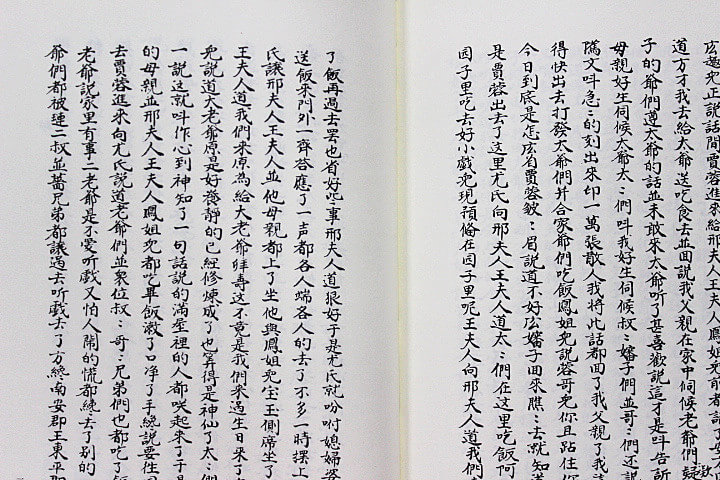 正說話間賈蓉進來給邢夫人王夫人鳳姐兒前都請了安
道方才我去給太爺送吃食去並回說我父親在家中伺候老爺們
子的爺們遵太爺的話並未敢來太爺听了甚喜歡說這才是呌告訴
母親好生伺候太爺太〻們呌我好生伺候叔〻嬸子們並哥〻們还說
隲文呌急〻的刻出來印一萬張散人我將此話都回了我父親了我
得快出去打發太爺們并合家爺們吃飯鳳姐兒說蓉哥兒你且跕住你
今日到底是怎庅肓賈蓉皴〻眉說道不好庅嬸子回來瞧〻去就知道
是賈蓉出去了这里尤氏向邢夫人王夫人道太〻們在这里吃飯阿
园子里吃去好小戲兒現預俻在园子里呢王夫人向邢夫人道我們
了飯再過去罷也省好些事邢夫人道狠好于是尤氏就吩咐媳婦婆
送飯來門外一齊荅應了一声都各人端各人的去了不多一時擺上
氏讓邢夫人王夫人並他母親都上了坐他與鳳姐兒宝玉側席坐了
王夫人道我們來原為給大老爺拜壽这不竟是我們來過生日來了
兒說道大老爺原是好養靜的已經修煉成了也筭得是神仙了太〻們
一說这就呌作心到神知了一句話說的滿屋裡的人都咲起來了于是
的母親並邢夫人王夫人鳳姐兒都吃畢飯漱了口净了手纔說要徃
去賈蓉進來向尤氏說道老爺們並衆位叔〻哥〻兄弟們也都吃了飯
老爺說家里有事二老爺是不愛听戲又怕人鬧的慌都纔去了別的
爺們都被璉二叔並薔兄弟都讓過去听戲去了方終南安郡王東平郡